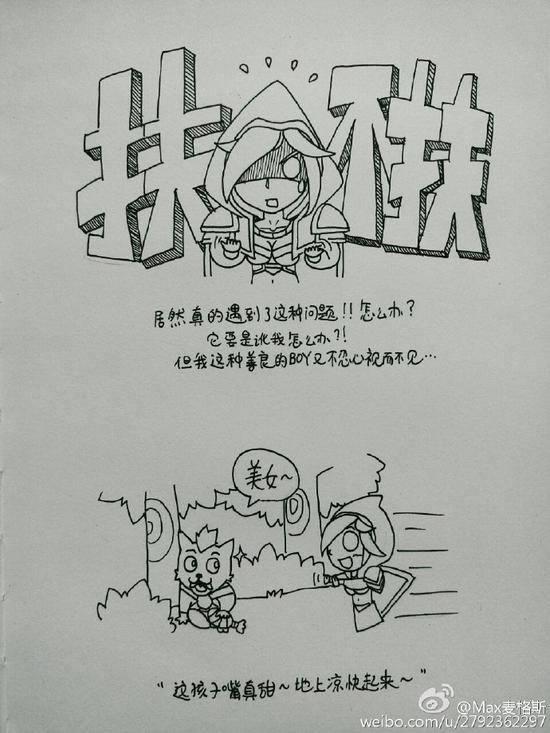 扶不扶
居然真的遇到了这种问题!!怎么办?
它要是讹我怎么办?!
但我这种善良的BOY又不忍心视而不见…
美女~
“这孩子嘴真甜~地上凉快起来~”
@Max麦格斯
weibo.com/u/2792362297